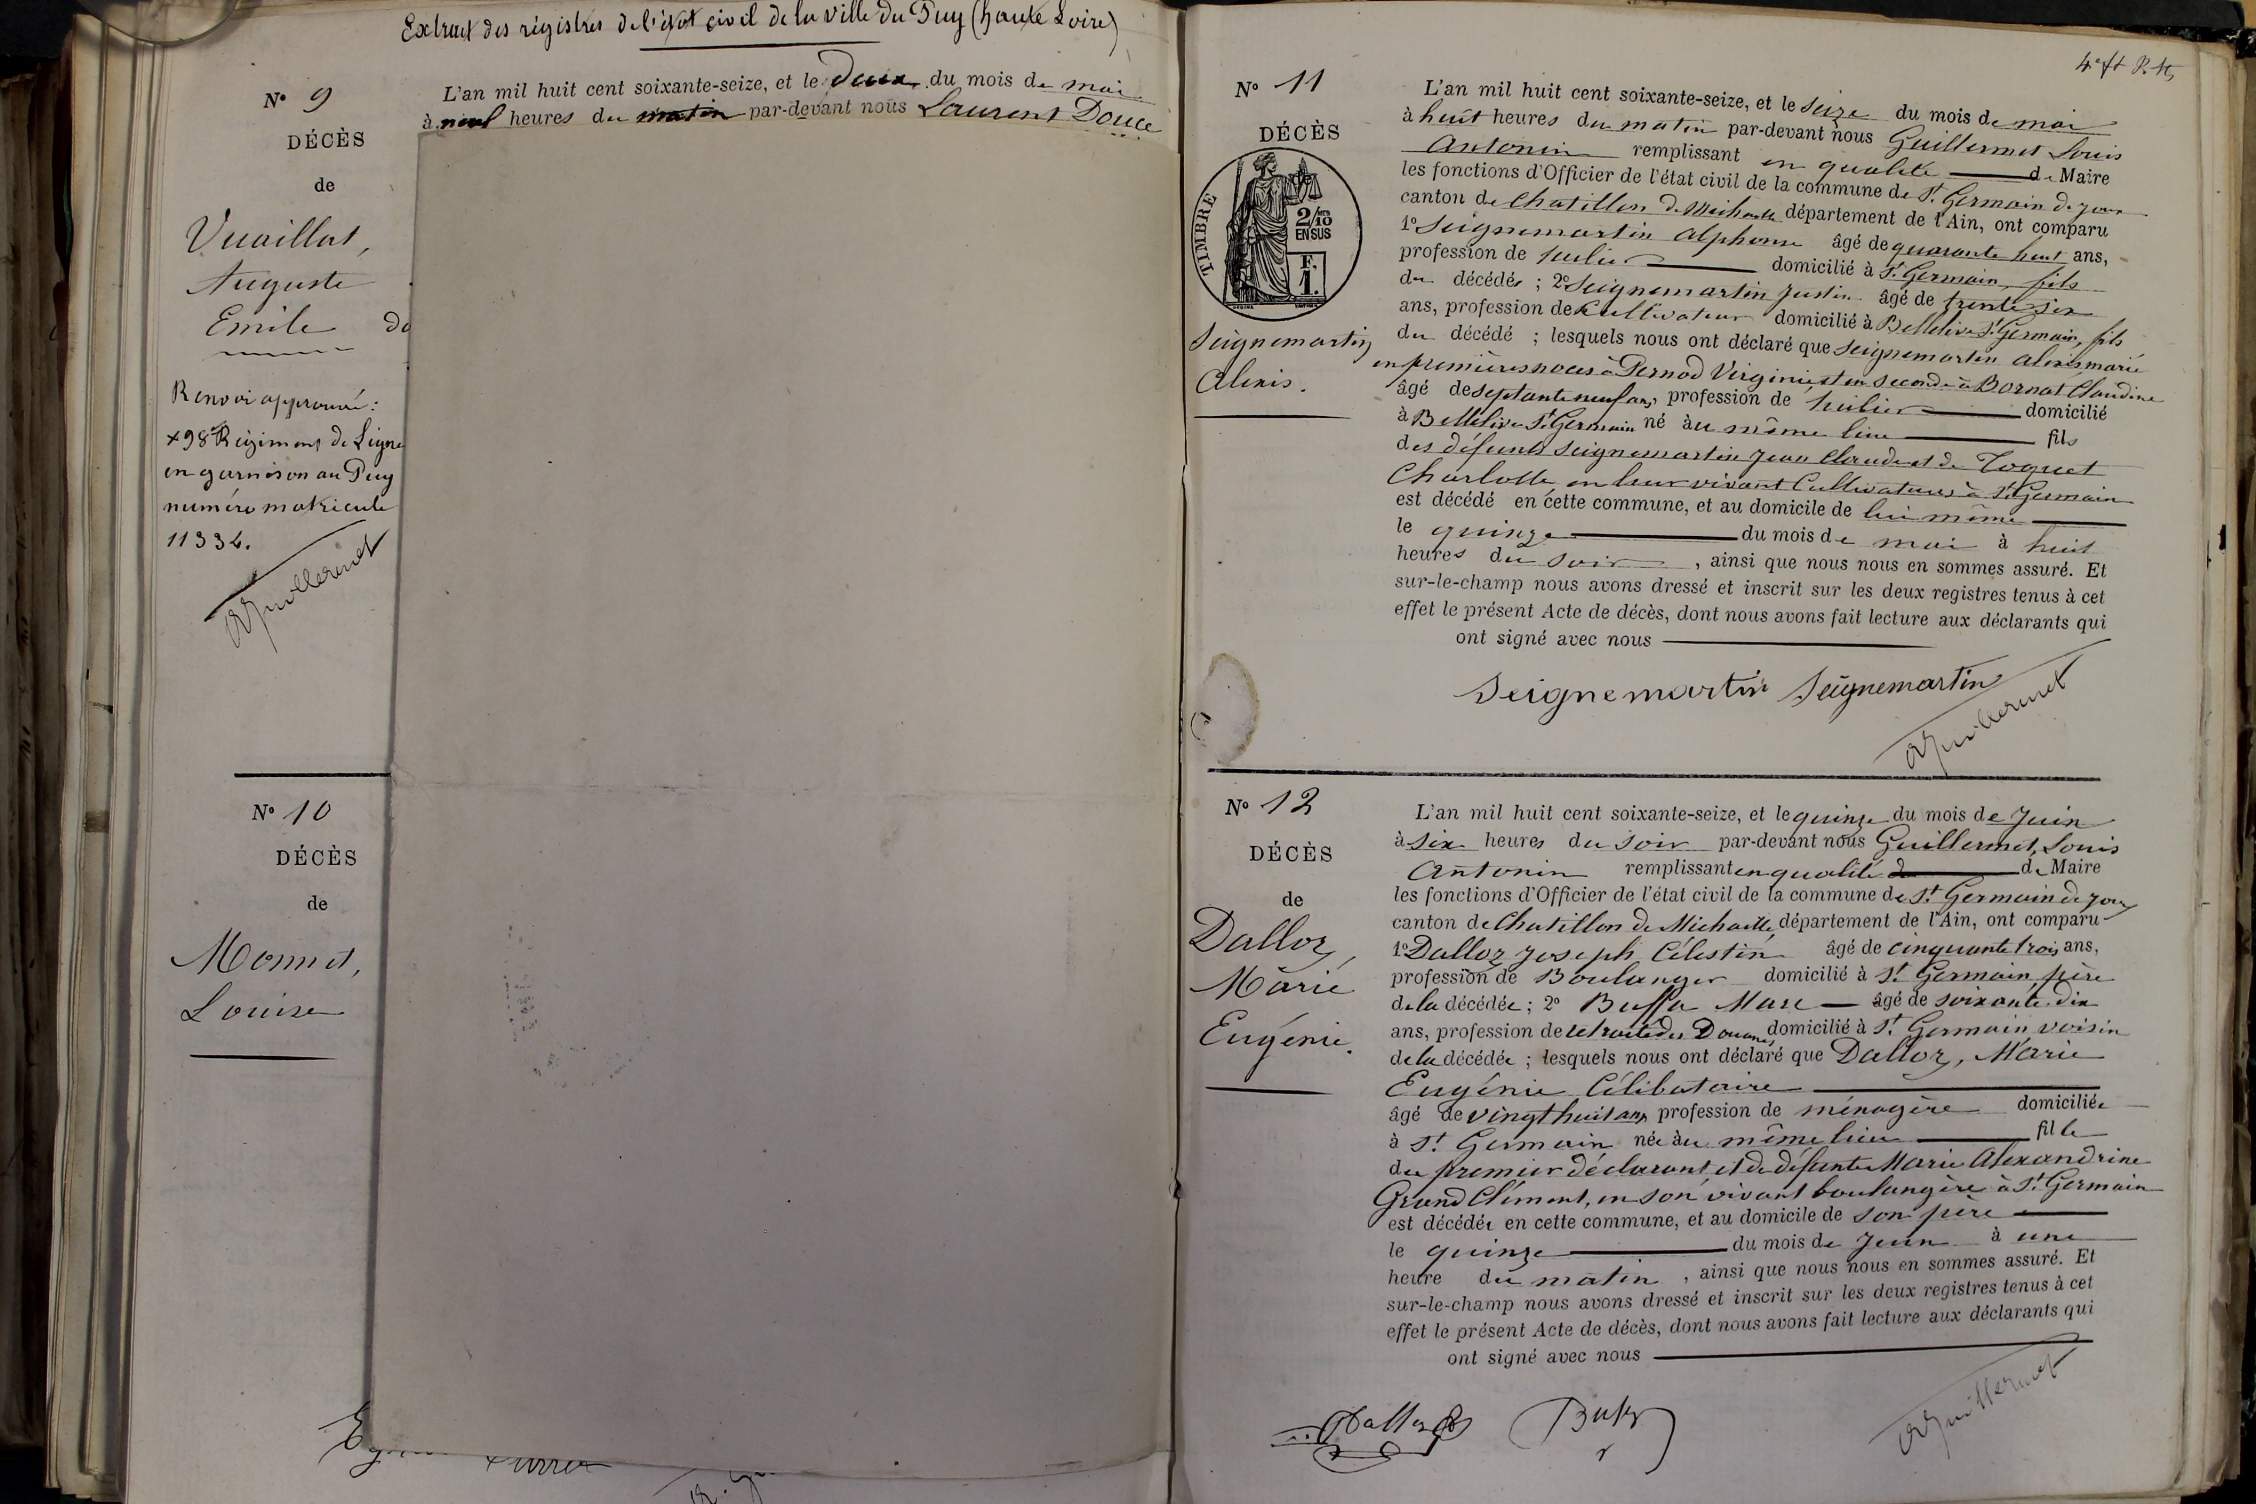 Extrait des régistres de l'état civil de la ville du Puy (haute Loire)
N° 9
DÉCÈS
de
Vuaillat,
Auguste
Emile
Renvoi approuvé:
+ 98e Régiment de Ligne
en garnison au Puy
numéro matricule
11334.
Guillermet
L'an mil huit cent soixante-seize, et le deux du mois de mai
à neuf heures du matin par-devant nous Laurent Douce
N° 10
DÉCÈS
de
Monnet,
Louise
N° 11
DÉCÈS
TIMBRE
2/10
EN SUS
F.
1.
Seignemartin
Alexis.
L'an mil huit cent soixante-seize, et le seize du mois de mai
à huit heures du matin par-devant nous Guillermet Louis
Antonin remplissant en qualité de Maire
les fonctions d'Officier de l'état civil de la commune de St. Germain de Joux
canton de Chatillon de Michaille département de l'Ain, ont comparu
1° Seignemartin Alphonse âgé de quarante huit ans,
profession de huilier domicilié à St. Germain, fils
du décédé ; 2° Seignemartin Justin âgé de trente six
ans, profession de Cultivateur domicilié à Belleive St. Germain, fils
du décédé ; lesquels nous ont déclaré que Seignemartin Alexis marié
en premières noces à Pernod Virginie, et en seconde à Bornat Claudine
âgé de septante neuf ans, profession de huilier domicilié
à Belleive St. Germain né au même lieu fils
des défunts Seignemartin Jean Claude et de Toquet
Charlotte en leur vivant Cultivateurs à St. Germain
est décédé en cette commune, et au domicile de lui même
le quinze du mois de mai à huit
heures du soir, ainsi que nous nous en sommes assuré. Et
sur-le-champ nous avons dressé et inscrit sur les deux registres tenus à cet
effet le présent Acte de décès, dont nous avons fait lecture aux déclarants qui
ont signé avec nous
Seignemartin Seignemartin
Guillermet
N° 12
DÉCÈS
de
Dalloz,
Marie
Eugénie.
L'an mil huit cent soixante-seize, et le quinze du mois de Juin
à six heures du soir par-devant nous Guillermet, Louis
Antonin remplissant en qualité de Maire
les fonctions d'Officier de l'état civil de la commune de St. Germain de Joux
canton de Chatillon de Michaille, département de l'Ain, ont comparu
1° Dalloz Joseph Célestin âgé de cinquante trois ans,
profession de Boulanger domicilié à St. Germain, père
de la décédée ; 2° Buffa Marc âgé de soixante dix
ans, profession de retraité des Douanes domicilié à St. Germain voisin
de la décédée ; lesquels nous ont déclaré que Dalloz, Marie
Eugénie Célibataire
âgé de vingt huit ans profession de ménagère domiciliée
à St. Germain née au même lieu fille
du premier déclarant et de défunte Marie Alexandrine
Grand Clément, en son vivant boulangère à St. Germain
est décédée en cette commune, et au domicile de son père
le quinze du mois de Juin à une
heure du matin, ainsi que nous nous en sommes assuré. Et
sur-le-champ nous avons dressé et inscrit sur les deux registres tenus à cet
effet le présent Acte de décès, dont nous avons fait lecture aux déclarants qui
ont signé avec nous
Dalloz
Guillermet